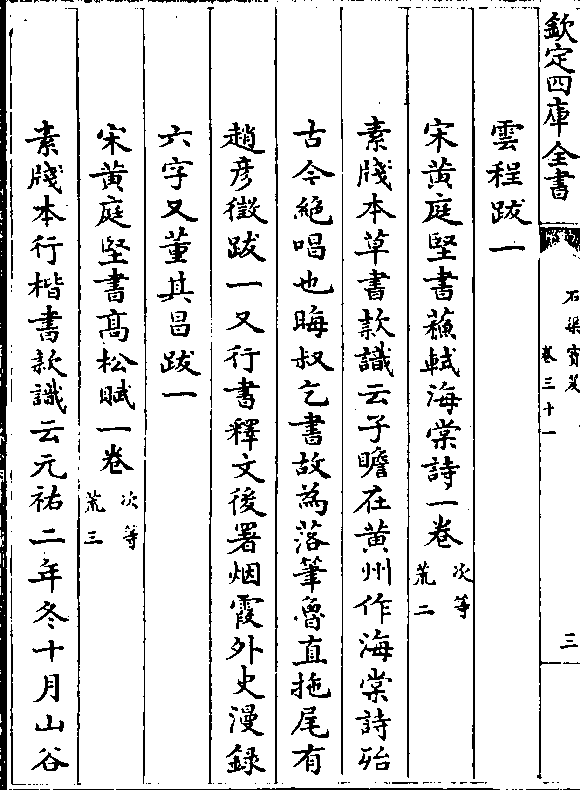 欽定四庫全書
石渠寳笈
卷三十一
三
雲程跋一
宋黄庭堅書蘓軾海棠詩一卷 次等 荒二
素牋本草書款識云子瞻在黄州作海棠詩殆
古今絶唱也晦叔乞書故為落筆魯直拖尾有
趙彦徵跋一又行書釋文後署烟霞外史漫録
六字又董其昌跋一
宋黄庭堅書髙松賦一卷 次等 荒三
素牋本行楷書款識云元祐二年冬十月山谷